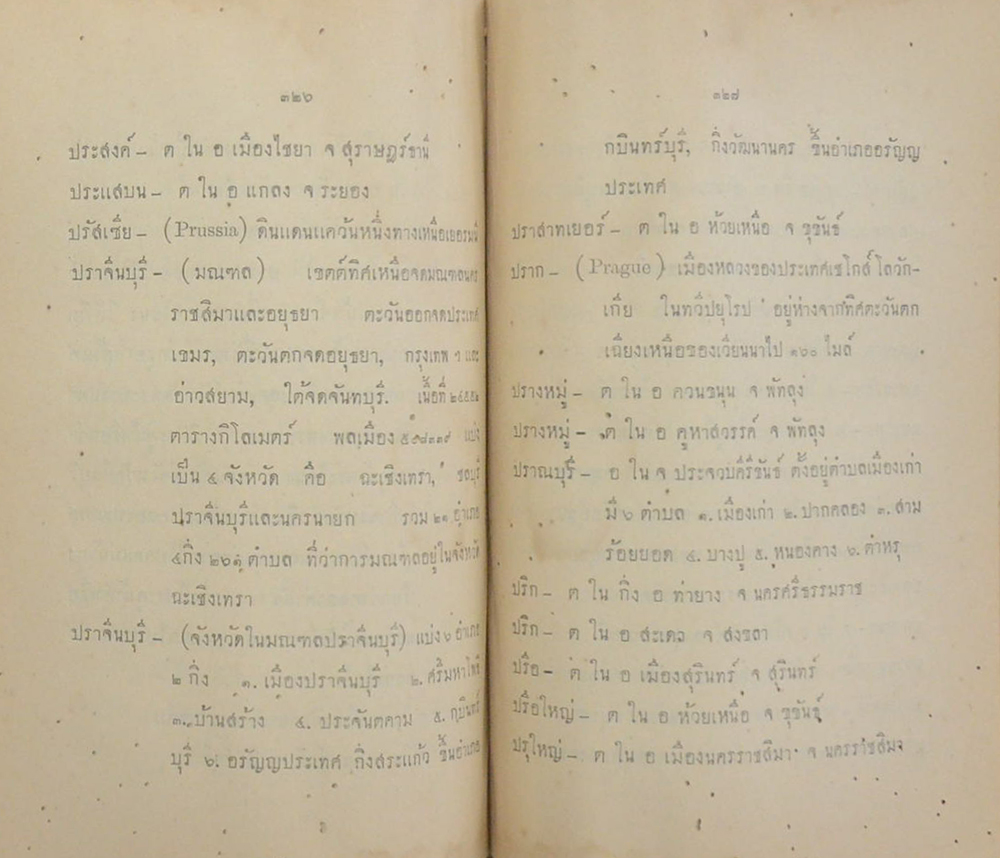 ๓๒๖
ประสงค์ – ต ใน อ เมืองไชยา จ สุราษฎร์ธานี
ประแสบน – ต ใน อ แกลง จ ระยอง
ปรัสเซีย – (Prussia) ดินแดนแคว้นหนึ่งทางเหนือเยอรมนี
ปราจีนบุรี – (มณฑล) เขตต์ทิศเหนือจดมณฑลนคร
ราชสิมาและอยุธยา ตะวันออกจดประเทศ
เขมร, ตะวันตกจดอยุธยา, กรุงเทพ ฯ และ
อ่าวสยาม, ใต้จดจันทบุรี. เนื้อที่
ตารางกิโลเมตร์ พลเมือง แบ่ง
เป็น ๔ จังหวัด คือ ฉะเชิงเทรา, ชลบุรี
ปราจีนบุรีและนครนายก รวม ๒๑ อำเภอ
๔กิ่ง ๒๖๑ ตำบล ที่ว่าการมณฑลอยู่ในจังหวัด
ฉะเชิงเทรา
ปราจีนบุรี – (จังหวัดในมณฑลปราจีนบุรี) แบ่ง ๖ อำเภอ
๒ กิ่ง ๑. เมืองปราจีนบุรี ๒. ศรีมหาโพธิ
๓. บ้านสร้าง ๔. ประจันตคาม ๕. กบินทร์
บุรี ๖. อรัญญประเทศ กิ่งสระแก้ว ขึ้นอำเภอ
๓๒๗
กบินทร์บุรี, กิ่งวัฒนานคร ขึ้นอำเภออรัญญ
ประเทศ
ปราสาทเยอร์ – ต ใน อ ห้วยเหนือ จ ขุขันธ์
ปราก – (Prague) เมืองหลวงของประเทศเชโกส์โลวัก-
เกีย ในทวีปยุโรป อยู่ห่างจากทิศตะวันตก
เฉียงเหนือของเวียนนาไป ๑๖๐ ไมล์
ปรางหมู่ – ต ใน อ ควนขนุน จ พัทลุง
ปรางหมู่ – ต ใน อ คูหาสวรรค์ จ พัทลุง
ปราณบุรี – อ ใน จ ประจวบคีรีขันธ์ ตั้งอยู่ตำบลเมืองเก่า
มี ๖ ตำบล ๑. เมืองเก่า ๒. ปากคลอง ๓. สาม
ร้อยยอด ๔. บางปู ๕. หนองคาง ๖. ตำหรุ
ปริก – ต ใน กิ่ง อ ท่ายาง จ นครศรีธรรมราช
ปริก – ต ใน อ สะเดา จ สงขลา
ปรือ – ต ใน อ เมืองสุรินทร์ จ สุรินทร์
ปรือใหญ่ – ต ใน อ ห้วยเหนือ จ ขุขันธ์
ปรุใหญ่ – ต ใน อ เมืองนครราชสีมา จ นครราชสีมา